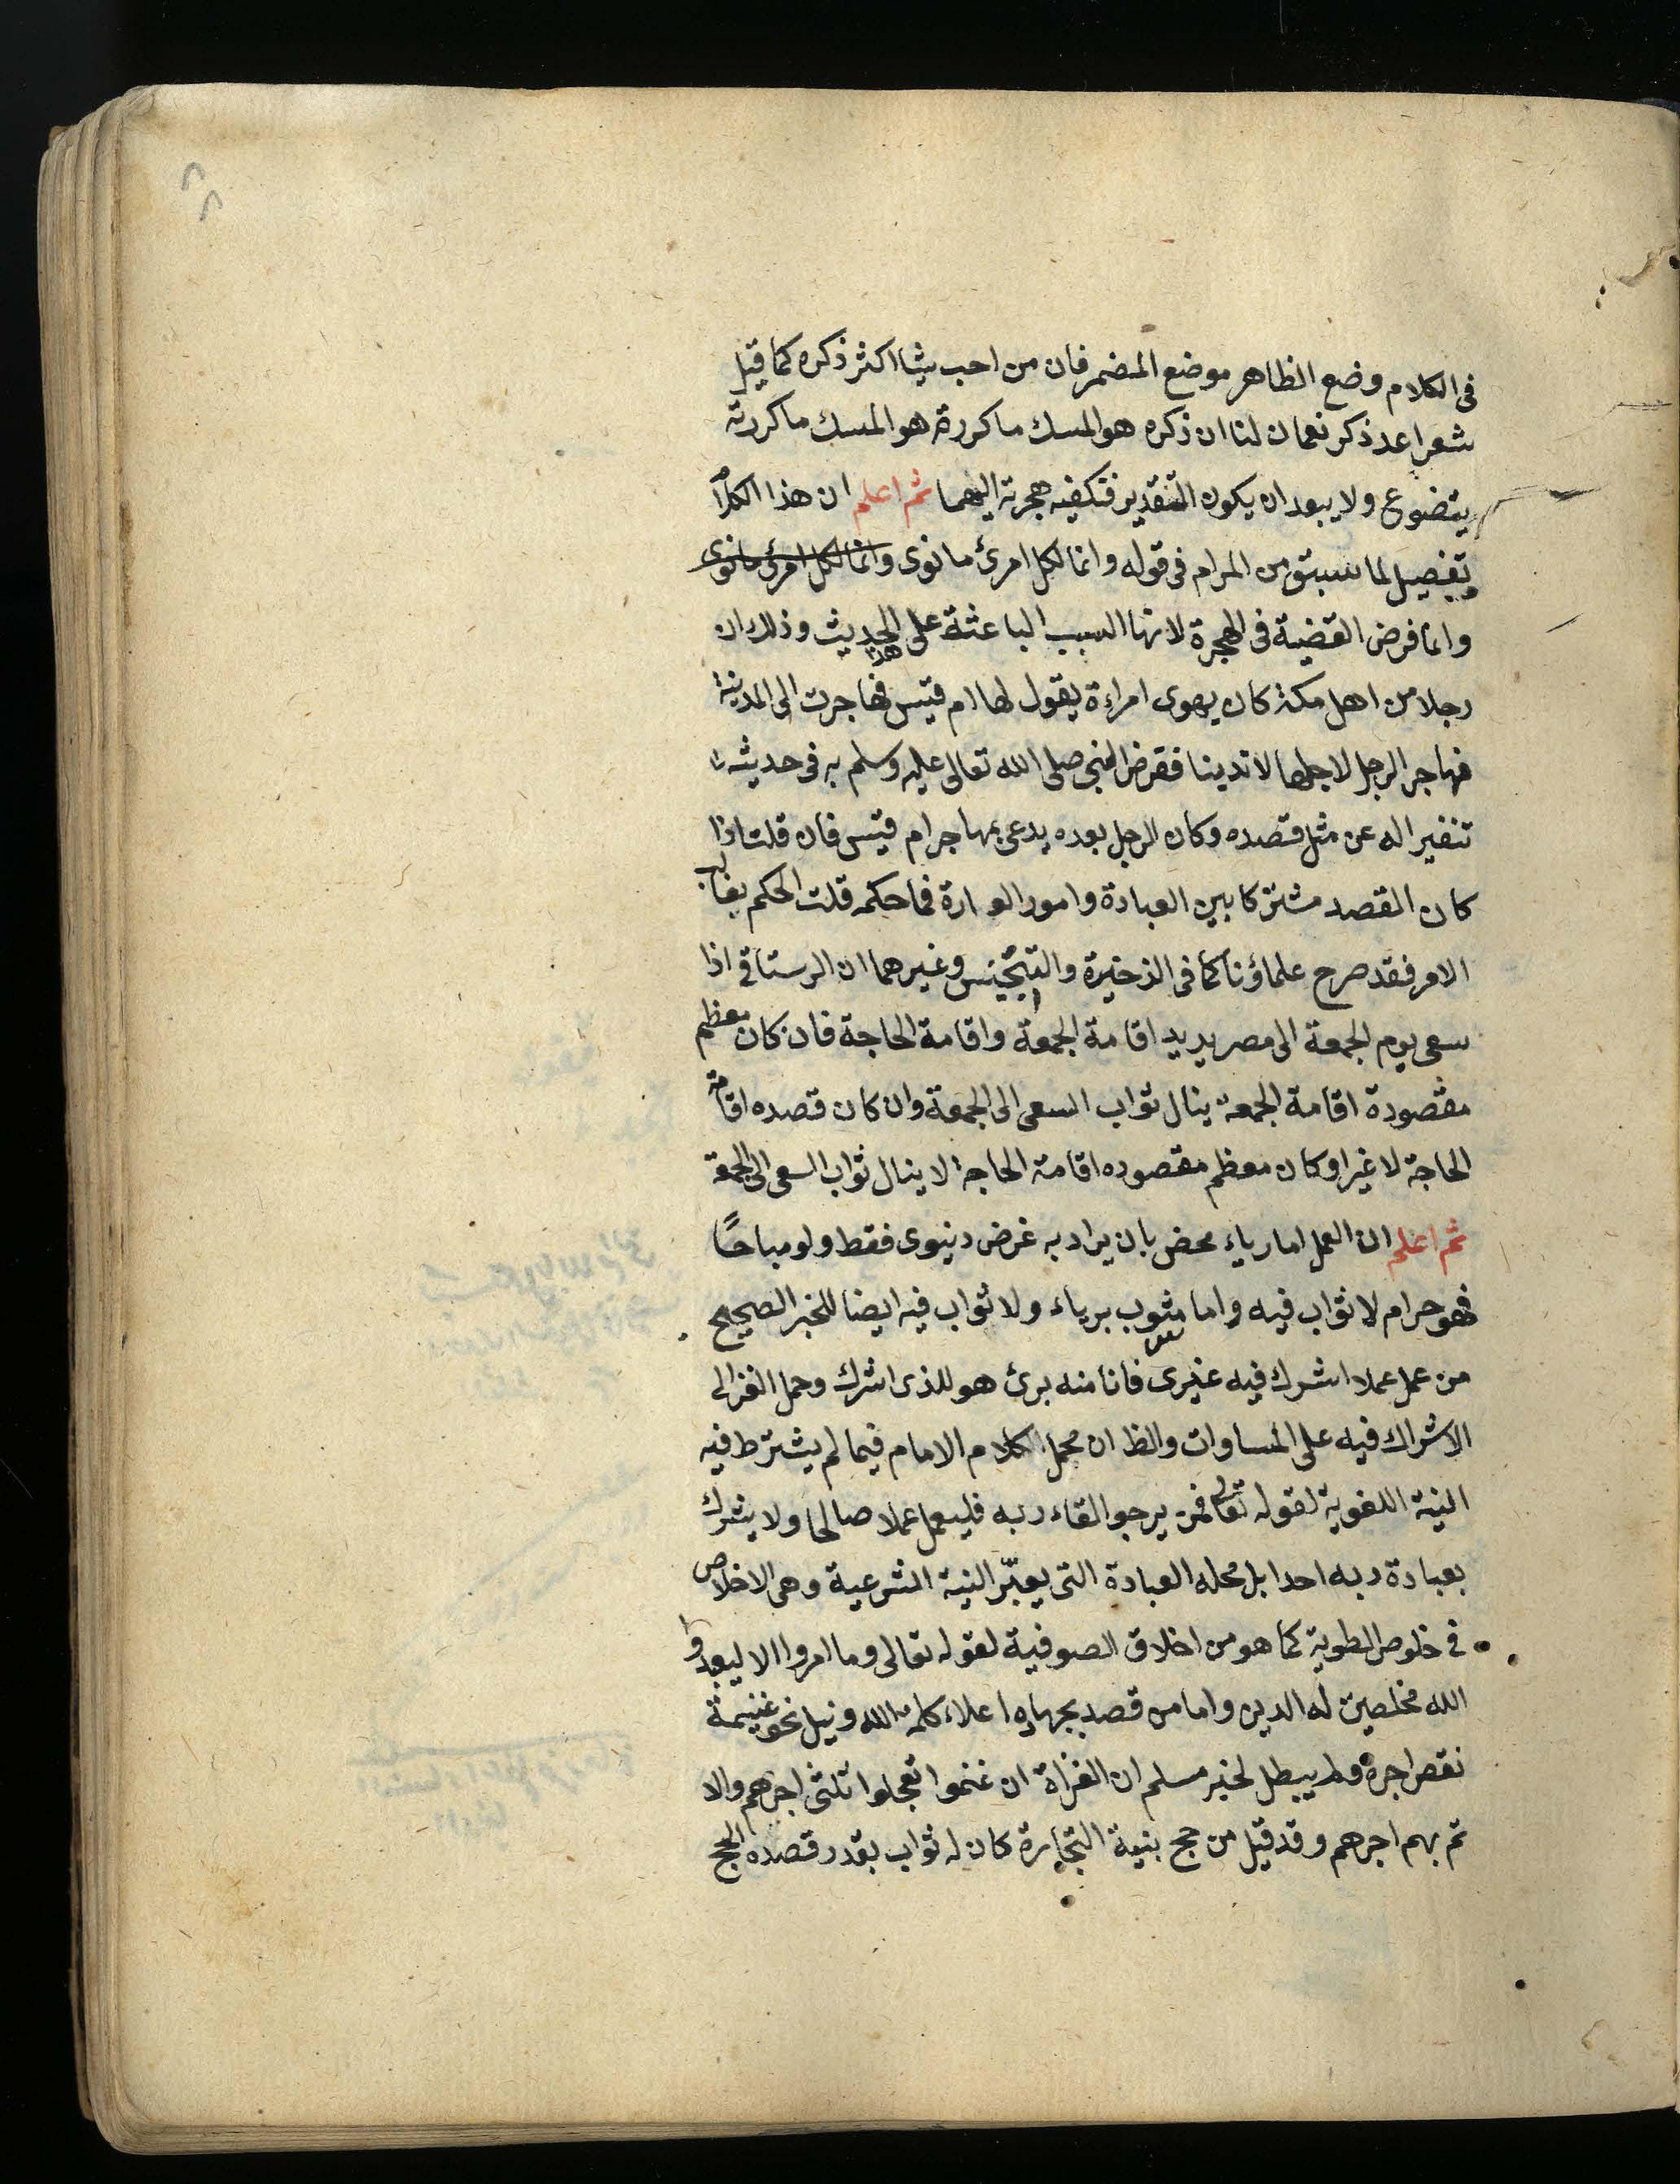 ٨٨
فى الكلام وضع الظاهر موضع المضمر فان من احب شيئا اكثر ذكره كما قيل
شعر اعد ذكر نعمان لنا ان ذكره هو المسك ما كررة هو المسك ما كررته
يتضوع ولا يبعد ان يكون التقدير فتكفيه هجرته اليهما ثم اعلم ان هذا الكلام
تفصيل لما سبق من المرام فى قوله وانما لكل امرئ ما نوى وانما لكل امرئ ما نوى
وانما فرض القضية فى الهجرة لانها السبب الباعثة على هذا الحديث وذلك ان
رجلا من اهل مكة كان يهوى امراءة يقول لها ام قيس فهاجرت الى المدينة
فهاجر الرجل لاجلها لا تدينا ففرض النبى صلى الله تعالى عليه وسلم به فى حديثه
تنفيرا له عن مثل قصده وكان الرجل بعده يدعى بمهاجر ام قيس فان قلت اذا
كان القصد مشتركا بين العبادة وامور العادة فما حكمه قلت الحكم بغالب
الامر فقد صرح علماؤنا كما فى الذخيرة والتجنيس وغيرهما ان الرستاقى اذا
سعى يوم الجمعة الى مصر يريد اقامة الجمعة واقامة الحاجة فان كان معظم
مقصودة اقامة الجمعة ينال ثواب السعى الى الجمعة وان كان قصده اقامة
الحاجة لا غير او كان معظم مقصوده اقامة الحاجة لا ينال ثواب السعى الى الجمعة
ثم اعلم ان العمل اما رياء محض بان يراد به غرض دنيوى فقط ولو مباحًا
فهو حرام لا ثواب فيه واما مشوب برياء ولا ثواب فيه ايضا للخبر الصحيح
من عمل عملا اشرك فيه غيرى فانا منه برئ هو للذى اشرك وحمل الغزالى
الاشراك فيه على المساوات والظ ان محمل الكلام الامام فيما لم يشترط فيه
النية اللغوية لقوله تعالى فمن يرجوا لقاء ربه فليعمل عملا صالحا ولا يشرك
بعبادة ربه احدا بل محله العبادة التى يعتبر النية الشرعية وهى الاخلاص
فى خلوص الطوية كما هو من اخلاق الصوفية لقوله تعالى وما امروا الا ليعبدوا
الله مخلصين له الدين واما من قصد بجهاده اعلاء كلمة الله ونيل نحو غنيمة
نقص اجره ولم يبطل لخبر مسلم ان الغزاة ان غنموا تعجلوا ثلثى اجرهم والا
تم بهم اجرهم وقد قيل من حج بنية التجارة كان له ثواب بقدر قصده الحج